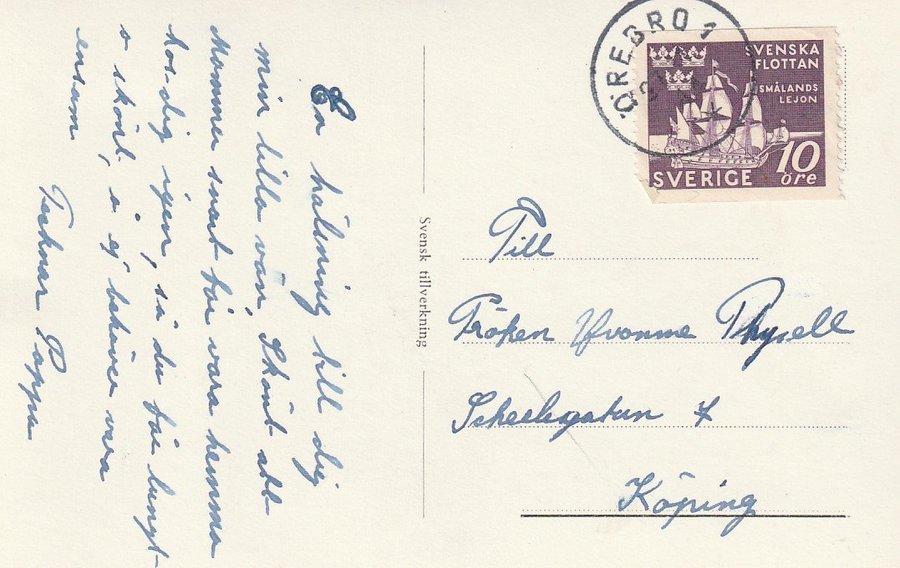 En hälsning till dig
min lilla vän. Skönt att
Mamma snart får vara hemma
hos dig igen, så du får lungt
o skönt, o ej behöver vara
ensam
Tecknar Pappa
Svensk tillverkning
ÖREBRO 1
SVENSKA
FLOTTAN
SMÅLANDS
LEJON
10
SVERIGE öre
Till
Fröken Yvonne Thysell
Scheelegatan 7
Köping